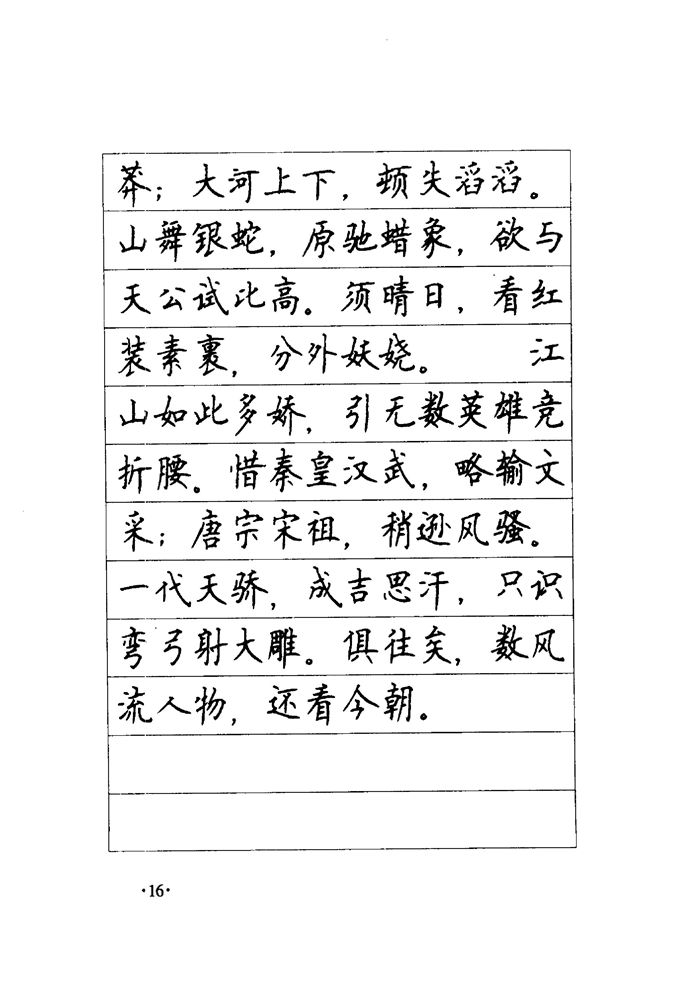 莽；大河上下，顿失滔滔。
山舞银蛇，原驰蜡象，欲与
天公试比高。须晴日，看红
装素裹，分外妖娆。　　江
山如此多娇，引无数英雄竞
折腰。惜秦皇汉武，略输文
采；唐宗宋祖，稍逊风骚。
一代天骄，成吉思汗，只识
弯弓射大雕。俱往矣，数风
流人物，还看今朝。
·16·